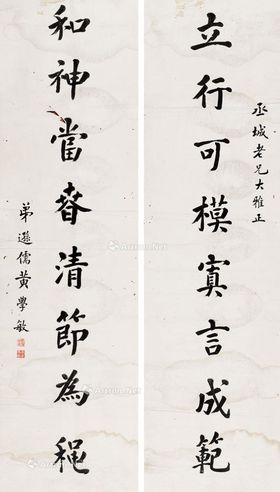 丞城老兄大雅正
立行可模寘言成範
和神當春清節為穐
弟遜儒黃學敏